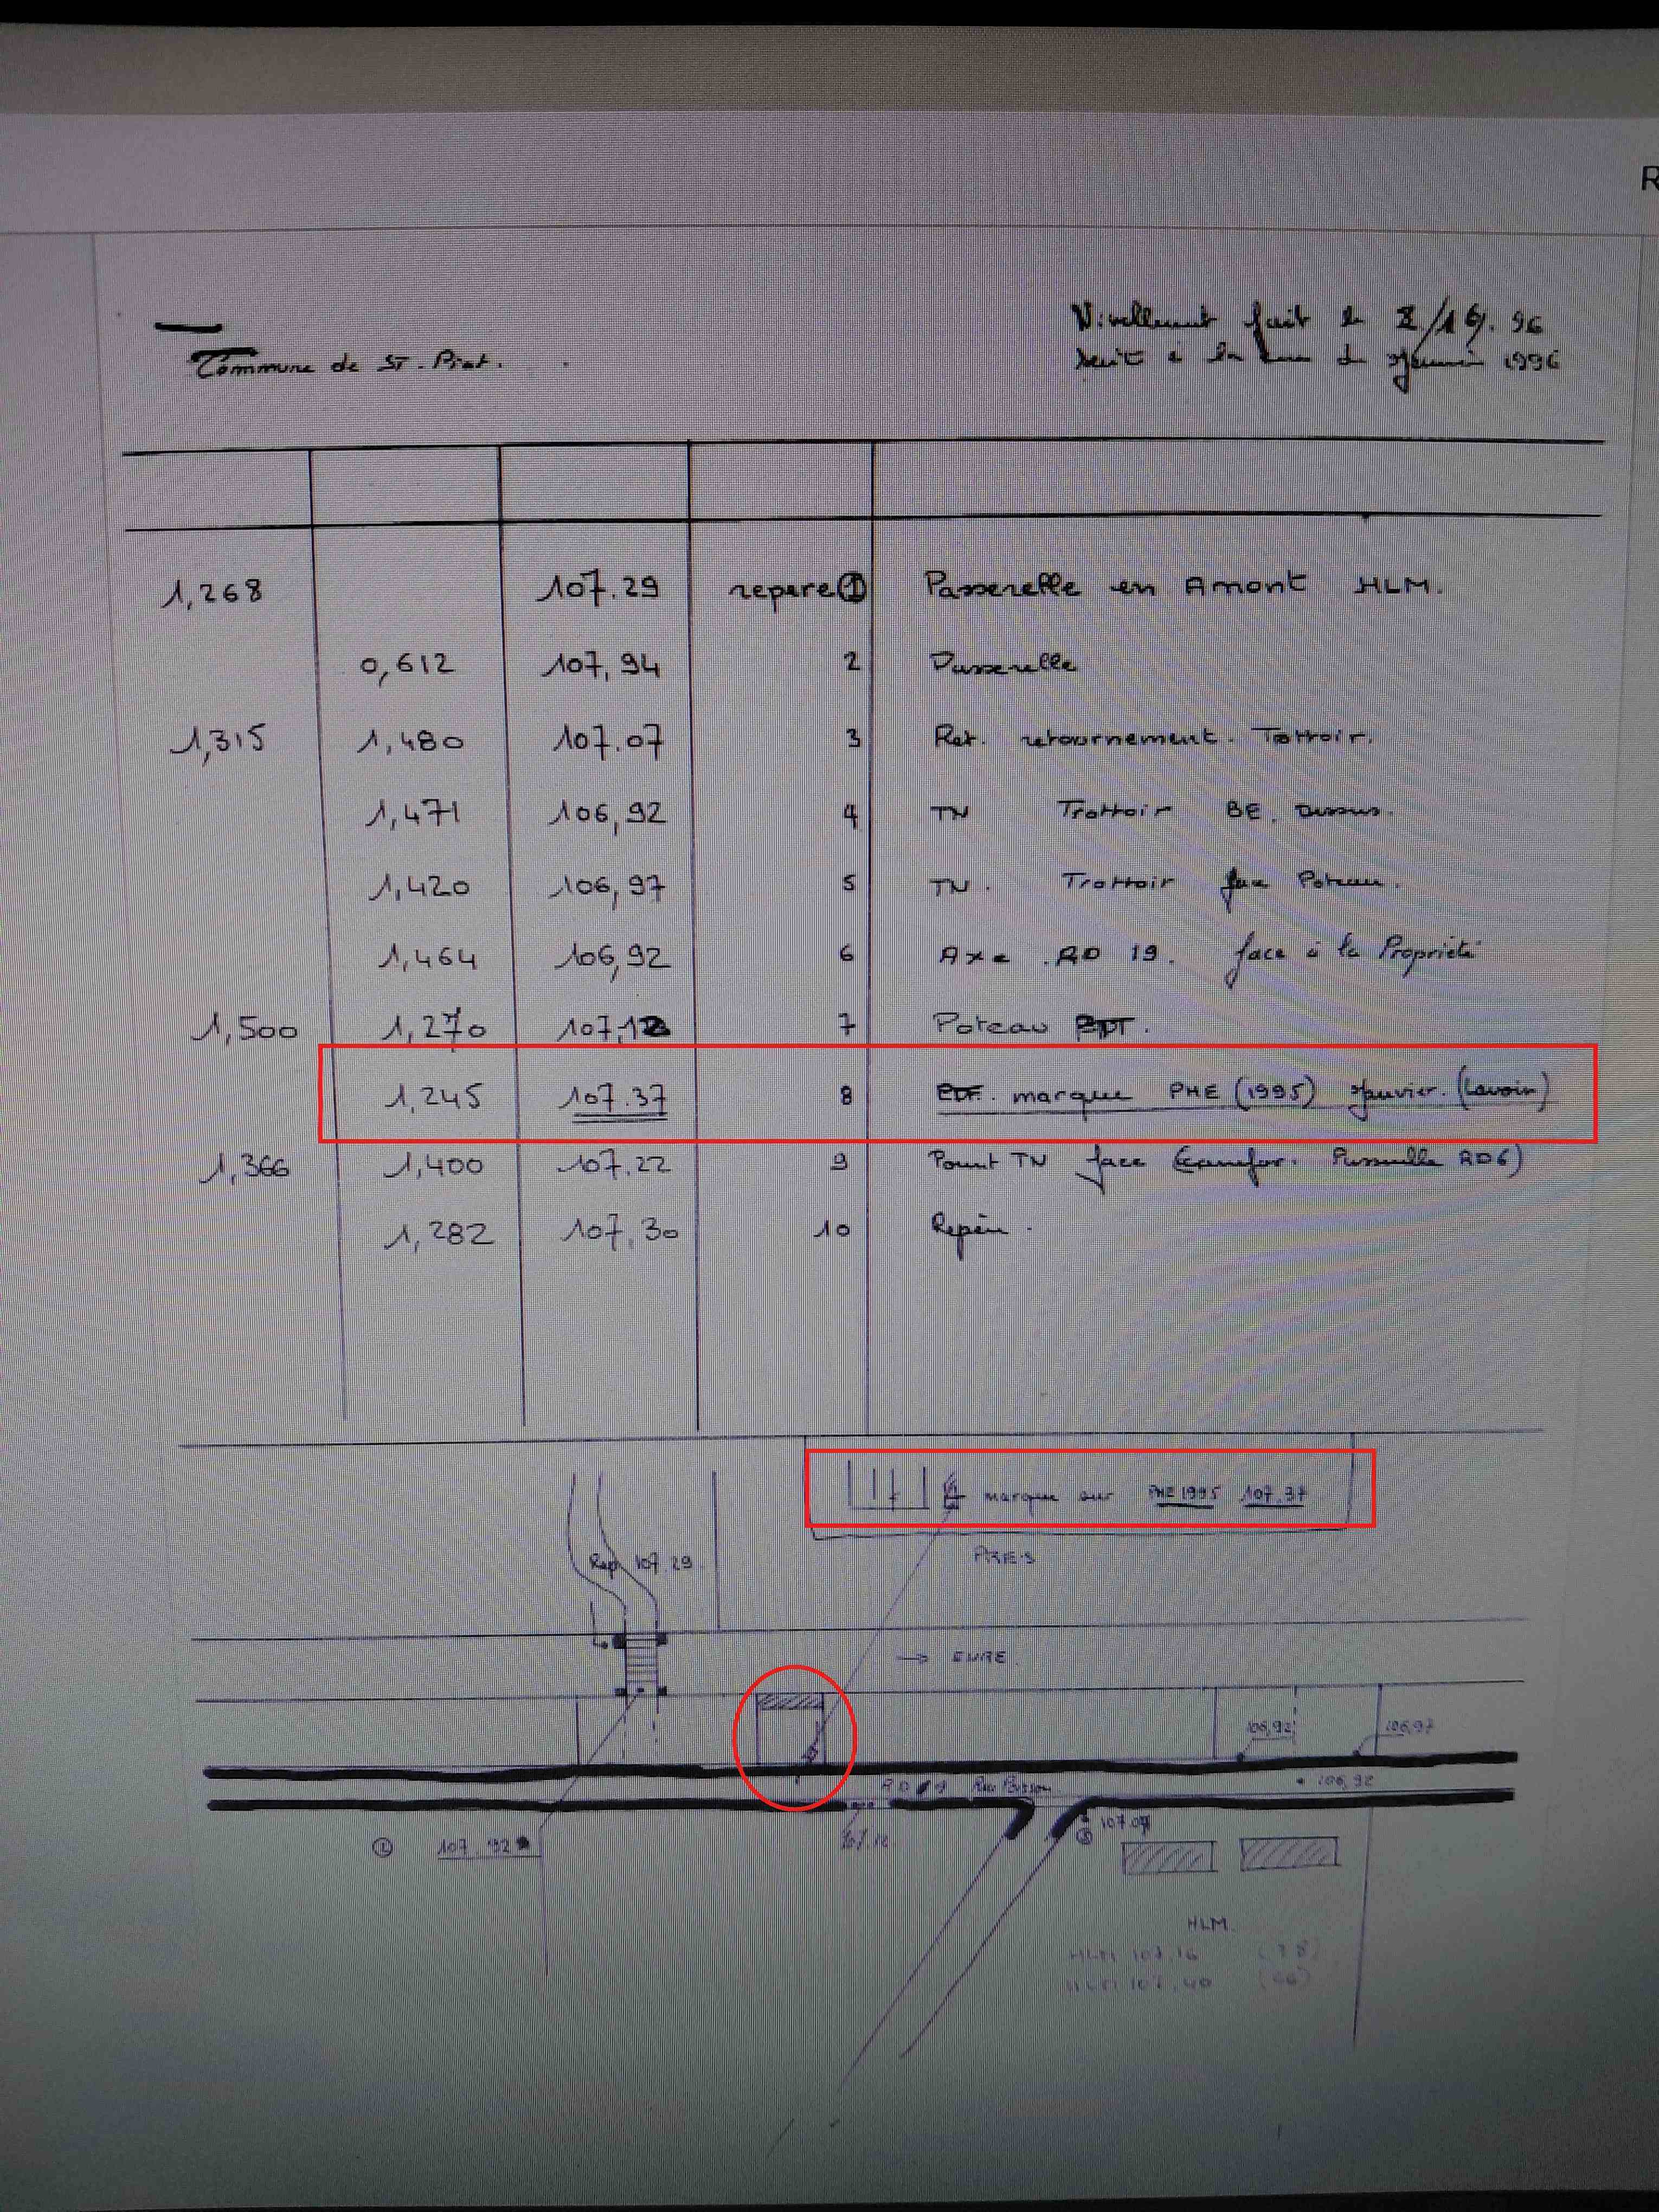 R
Nivellement fait le /16/. 96
Commune de St. Prest.
suite à la crue de Janvier 1996
1,268 107.29 repere ① Passerelle en Amont HLM.
0,612 107,94 2 Passerelle
1,315 1,480 107.07 3 retournement. Trottoir.
1,471 106,92 4 TN Trottoir BE.
1,420 106,97 5 TN. Trottoir face Poteau.
1,464 106,92 6 Axe RD 19. face à la Propriété
1,500 1,270 107,12 7 Poteau
1,245 107.37 8 EDF. marque PHE (1995) Janvier. (Lavoir)
1,366 1,400 107,22 9 Point TN face Passerelle RD6)
1,282 107,30 10 Repère.
marque sur PHE 1995 107.37
PRES
Rep 107.29
→ EURE
106,92 106,97
RD 19 Rue
106,92
107.07
③
② 107.92
HLM.
HLM 107.16
HLM 107.40